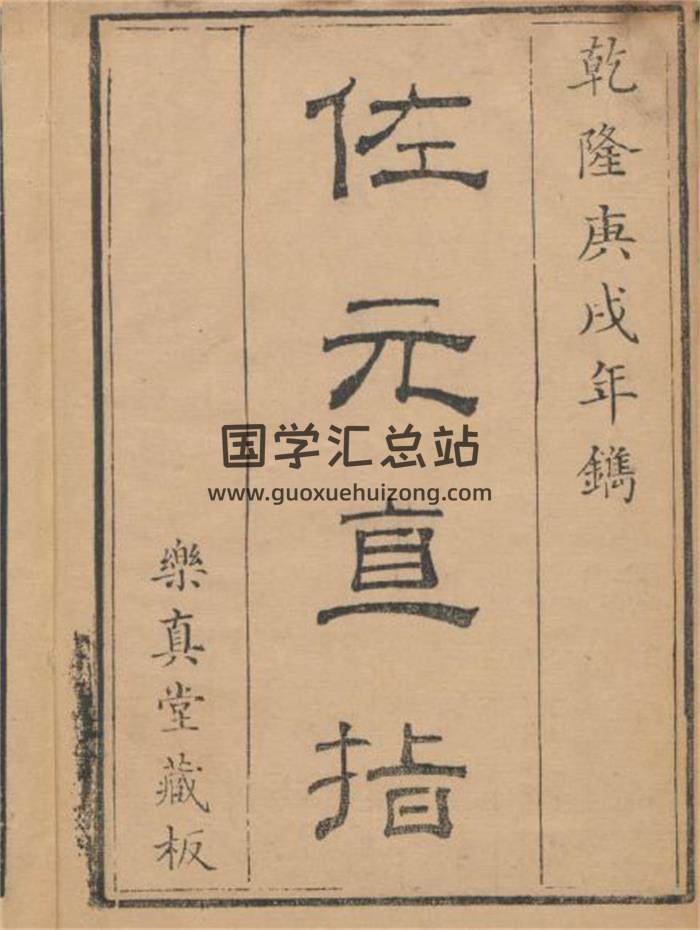 乾隆庚戌年鐫
佐元直指
樂真堂藏板
国学汇总站
www.guoxuehuizong.com